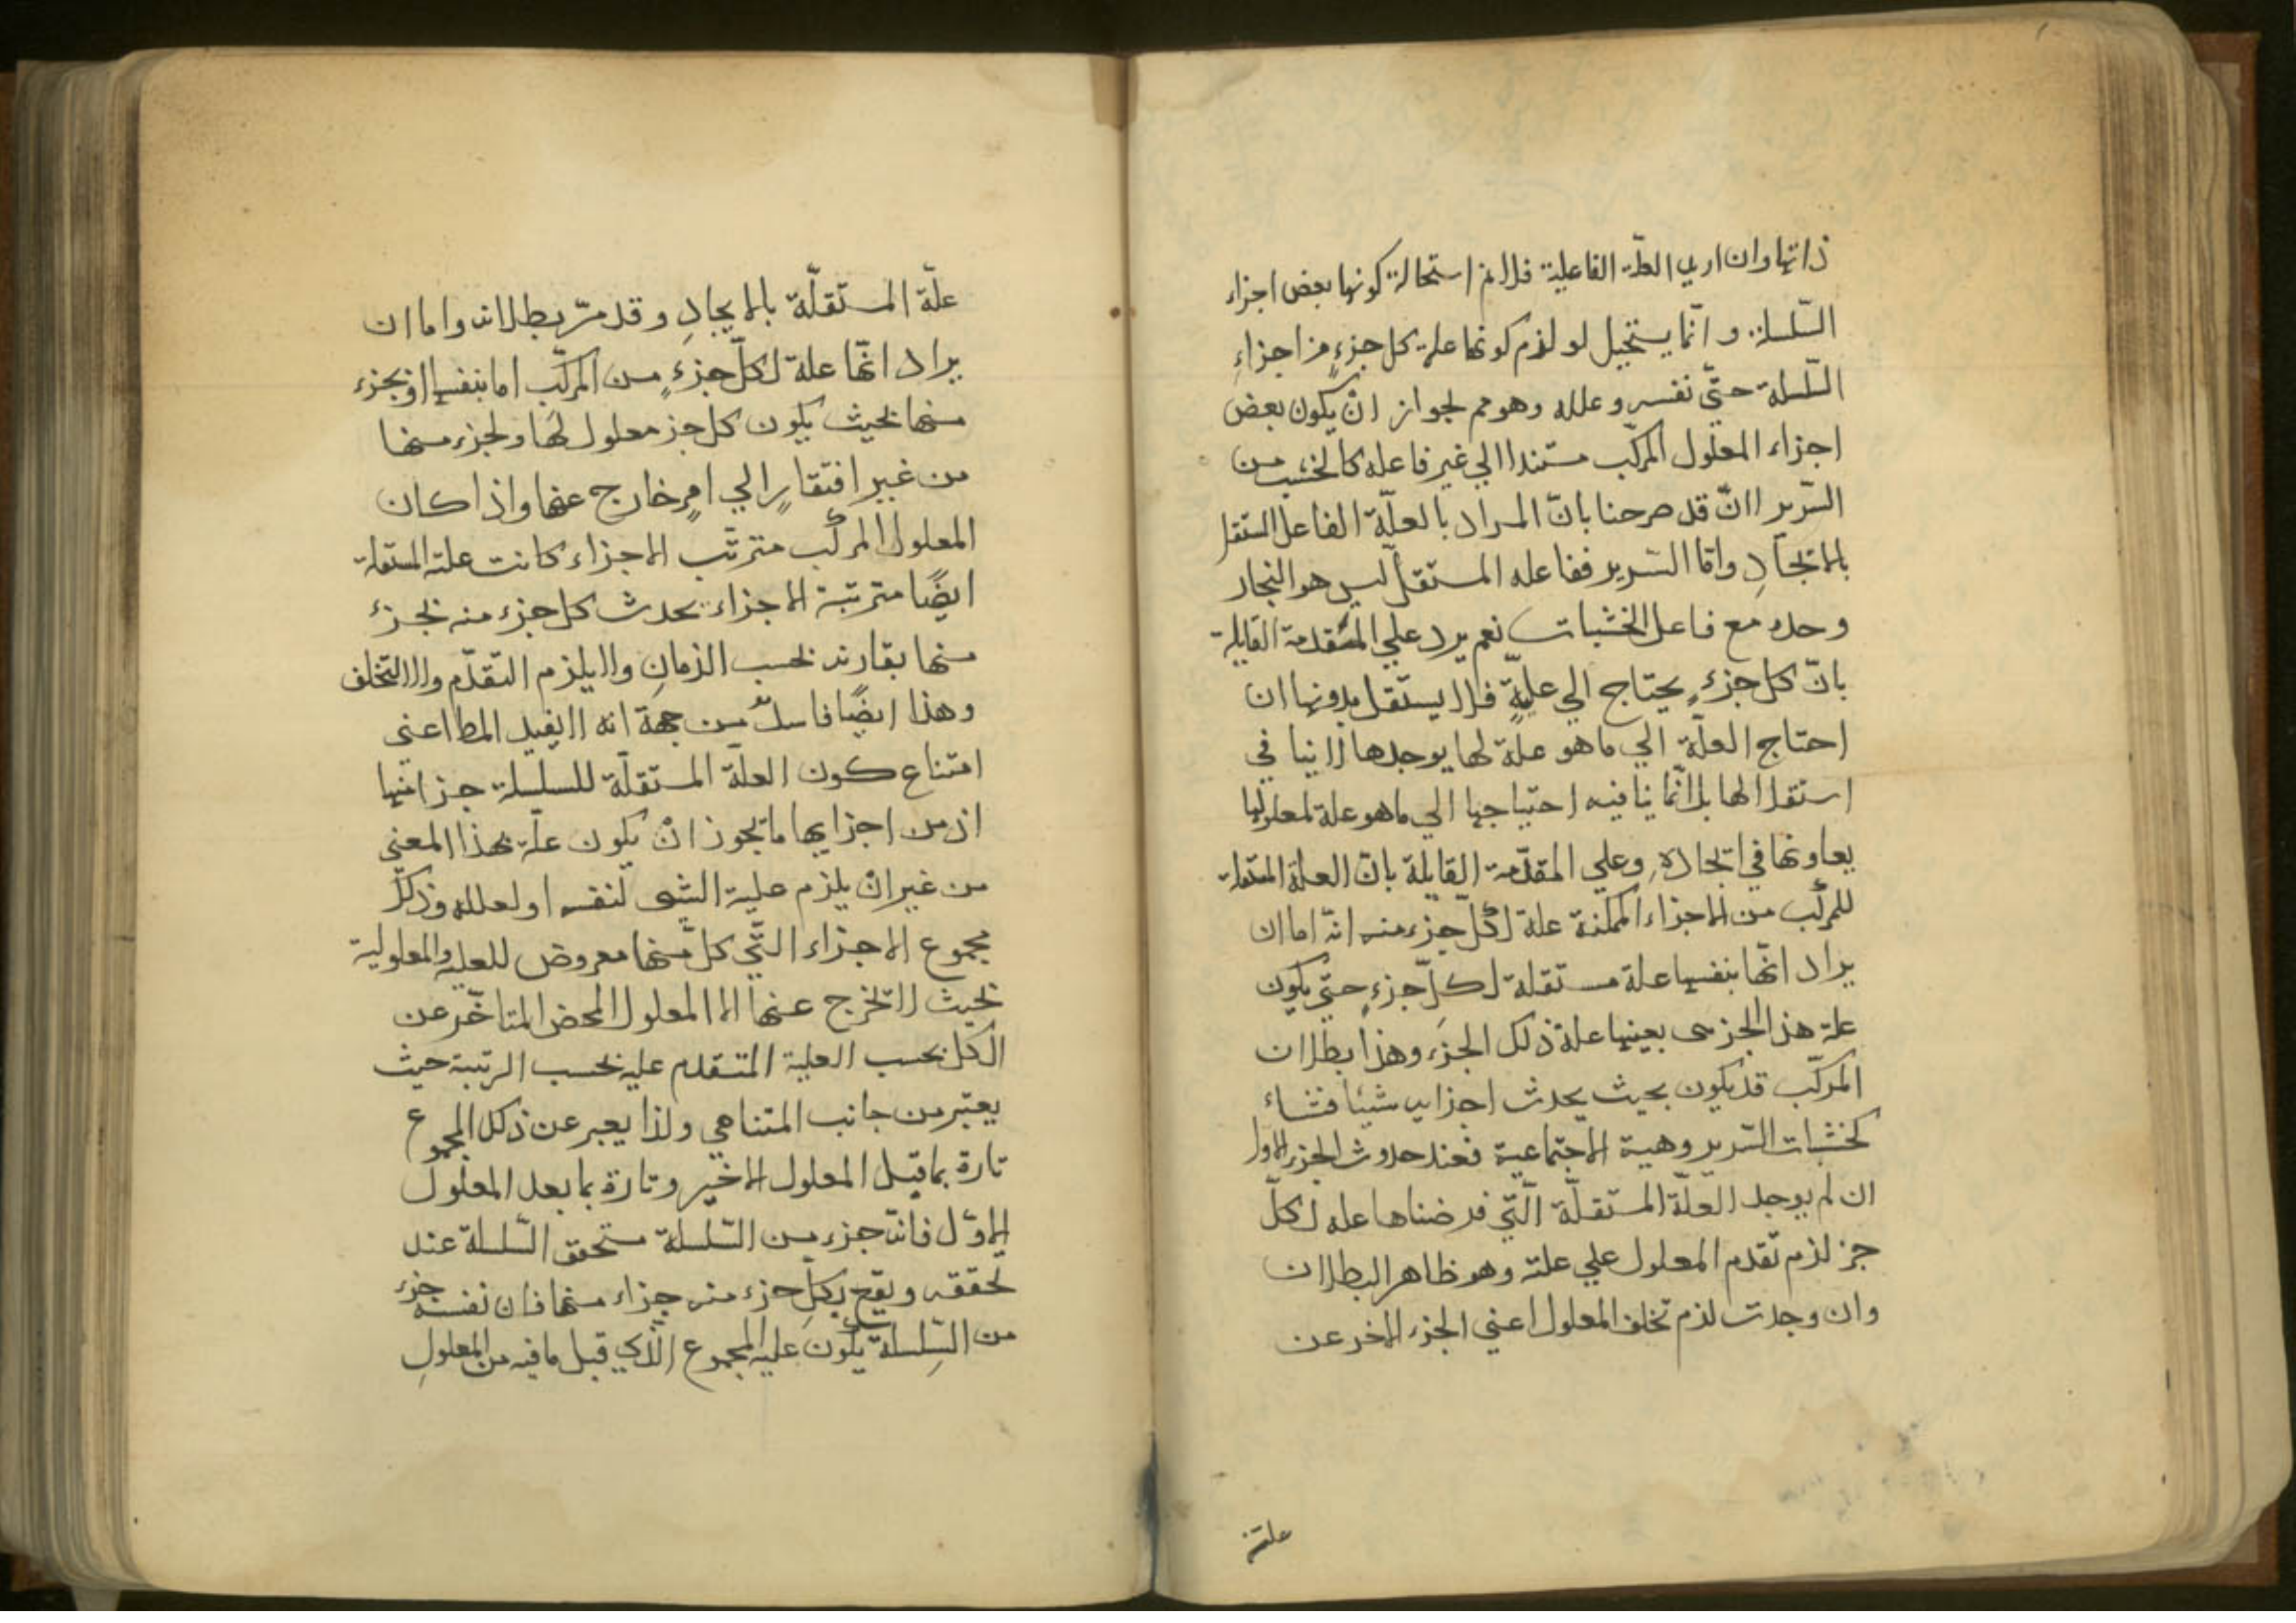 ذاتها وان اريد العلة الفاعلية فلا نم استحالة كونها بعض اجزاء
السّلسلة وانّما يستحيل لو لزم كونها علة كل جزءٍ من اجزاءِ
السّلسلة حتّى نفسه وعلله وهو مم لجواز انْ يكون بعض
اجزاء المعلول المركّب مستندا الي غير فاعله كالخشب من
السّرير لانّ قد صرحنا بانّ المراد بالعلّة الفاعل المستقل
بالايجادِ وامّا السّرير ففاعله المستقل ليس هو النجار
وحده مع فاعل الخشبات نعم يرد علي المقدمة القايلة
بانّ كل جزءٍ يحتاج الي عليةٍ فلا يستقل بدونها ان
احتاج العلّة الي ما هو علة لها يوجدها لا ينافي
استقلالها بل انّما ينافيه احتياجها الي ما هو علة لمعلولها
يعاونها في ايجادهِ وعلي المقدّمة القايلة بانّ العلة المستقلة
للمركّب من الاجزاء الممكنة علة لكلّ جزء منه انّه اما ان
يراد انّها بنفسها علة مستقلة لكلّ جزءٍ حتّي يكون
علة هذا الجزء هى بعينها علة ذلك الجزء وهذا بط لان
المركّب قد يكون بحيث يحدث اجزايه شيئا فشاء
كخشبات السّرير وهيية الاجتماعية فعند حدوث الجزء الاول
ان لم يوجد العلّة المستقلّة الّتي فرضناها علة لكلّ
جز لزم تقدم المعلول علي علته وهو ظاهر البطلان
وان وجدت لزم تخلف المعلول اعني الجزء الاخر عن
علته
علّة المستقلّة بالايجادِ وقد مرّ بطلانه واما ان
يراد انّها علة لكلّ جزءٍ من المركّب اما بنفسها او بجزء
منها بحيث يكون كل جز معلول لها ولجزء منها
من غير افتقارٍ الي امرٍ خارج عنها واذا كان
المعلول المركّب مترتّب الاجزاء كانت علته المستقلة
ايضًا مترتبة الاجزاء يحدث كل جزء منه بجزء
منها بقارنه بحسب الزمانِ ولا يلزم التّقدّم ولا التخلف
وهذا ايضًا فاسدٌ من جهة انه لا يفيد المط اعني
امتناع كون العلّة المستقلّة للسلسلة جزا منها
اذ من اجزايها ما يجوز انْ يكون علّة بهذا المعني
من غير انْ يلزم علية الشى لنفسه او لعلله وذلك
مجموع الاجزاء الّتي كل منها معروض للعلية والمعلولية
بحيث لا يخرج عنها الا المعلول المحض المتاخّر عن
الكل بحسب العلية المتقدم عليه بحسب الرتبة حيث
يعتبر من جانب المتناهي ولذا يعبر عن ذلك المجموع
تارة بما قبل المعلول الاخير وتارة بما بعد المعلول
الاوّل فانّه جزء من السّلسلة مستحقق السّلسلة عند
تحققه ويقع بكلّ جزء منه جزاء منها فان نفسه جزء
من السّلسلة يكون عليه المجموع الّذي قبل ما فيه من المعلولِ